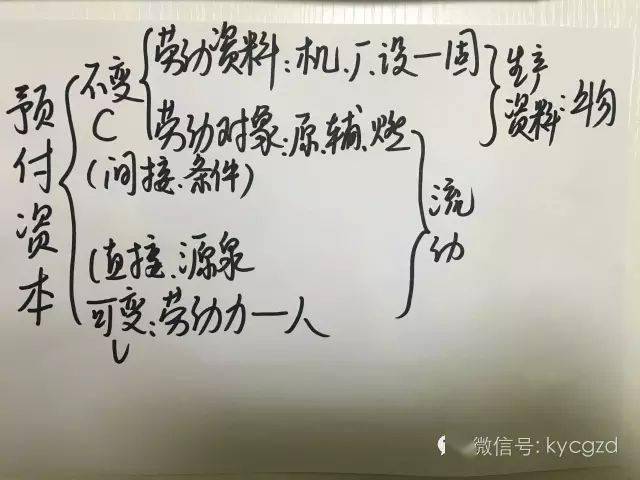 预付资本
不变
C
劳动资料:机.厂.设一固
劳动对象:原.辅.燃
生产
资料:物
(间接.条件)
流动
(直接.源泉
可变:劳动力一人
V
微信号: kycgzd